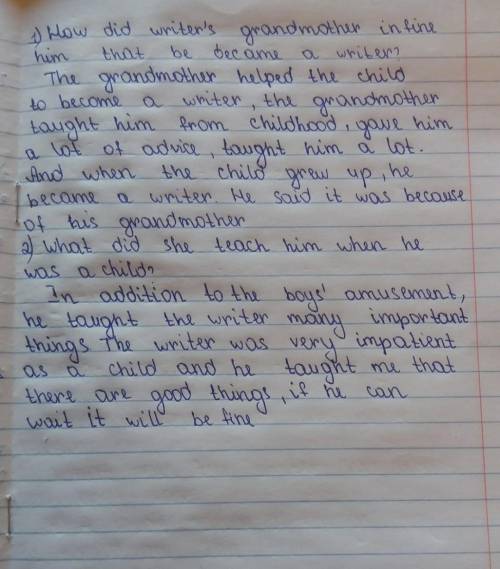 1) How did writer's grandmother infine
him that be became a writer?
The grandmother helped the child
to become a writer, the grandmother
taught him from childhood, gave him
a lot of advice, taught him a lot.
And when the child grew up, he
became a writer. He said it was because
of his grandmother
2) What did she teach him when he
was a child?
In addition to the boys' amusement,
he taught the writer many important
things The writer was very impatient
as a child and he taught me that
there are good things, if he can
wait it will be fine